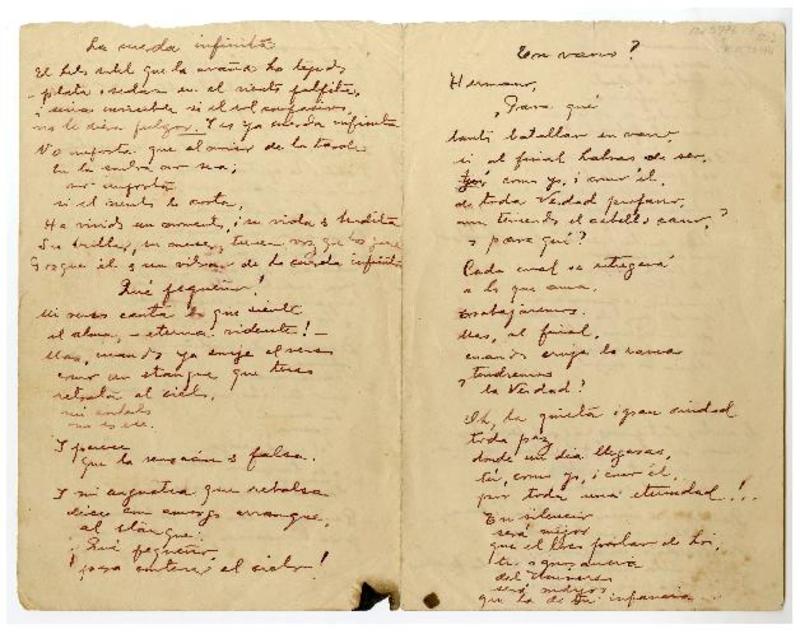 La cuerda infinita
El hilo sutil que la araña ha tejido
plata i seda en el viento palpita,
i sería invisible si el sol compasivo
no le diera fulgor. I es ya cuerda infinita
No importa que al morir de la tarde
no importa
si el viento le corta,
Ha vivido un momento, i su vida bendita
Su brillar, su mecer, tienen voz que los
Porque él es un vibrar de la cuerda infinita
Qué pequeño!
Mi verso canta lo que siente
el alma, — eterna vidente! —
Mas, cuando ya surje el verso
como un estanque que terso
retrata al cielo,
mi anhelo
no es ese.
I parece
que la sensación es falsa.
I mi angustia que rebalsa
dice con amargo arranque,
al estanque:
¡Qué pequeño
para contener el cielo!
En vano?
Hermano,
¿Para qué
tanto batallar en vano,
si al final habrás de ser,
como yo, i como él,
de toda Verdad profano,
aun teniendo el cabello cano,?
¿para qué?
Cada cual se entregará
a lo que ama.
Trabajaremos.
Mas, al final,
cuando cruja la rama
¿tendremos
la Verdad?
Oh, la quieta i gran ciudad
toda paz
donde un día llegarás,
tú, como yo, i como él,
por toda una eternidad!..
En silencio
será mejor
que el loco parlar de hoi,
tu
del Universo
será mejor
que la de tu infancia